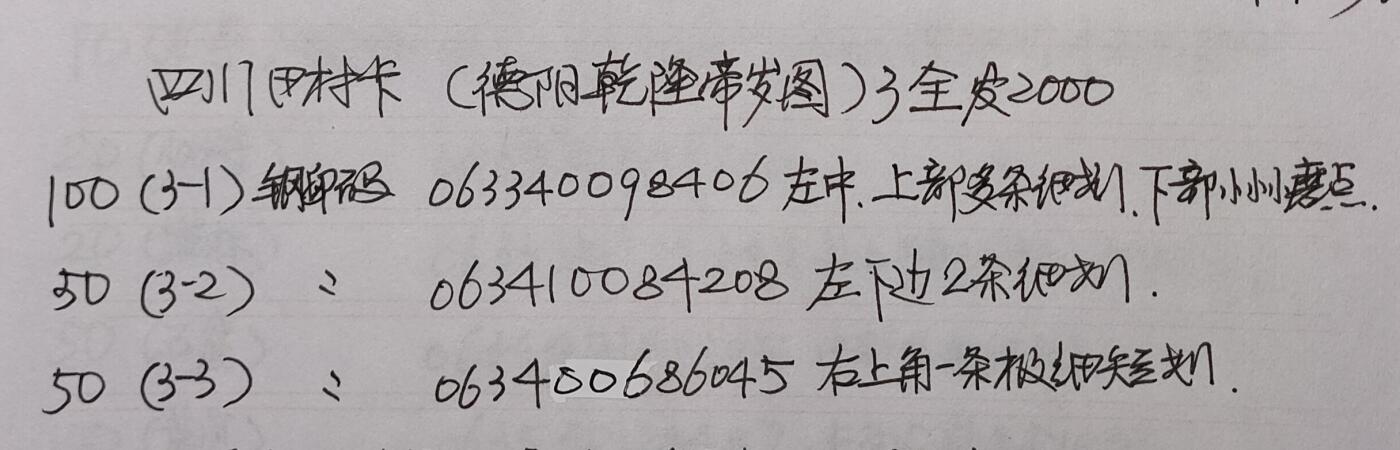 四川田村卡（德阳乾隆帝岁图）3全发2000
100（3-1）钢印码 063340098406 左中.上部多条细划.下部小小磨点.
50（3-2）〃 063410084208 左下边2条细划.
50（3-3）〃 063400686045 右上角一条极细短划.